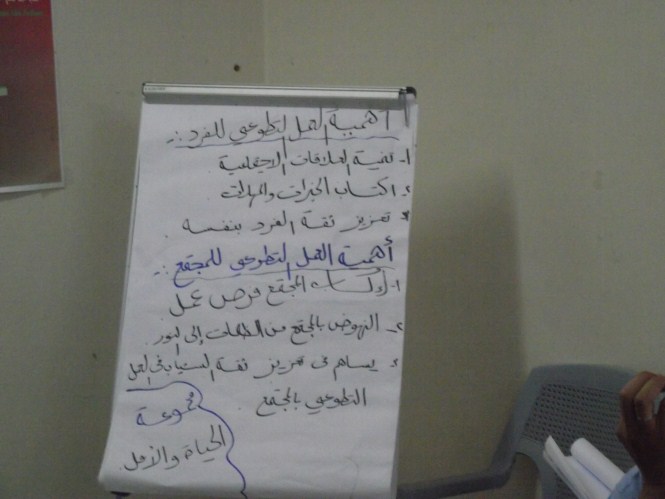 أهمية العمل التطوعي للفرد :-
١- تنمية العلاقات الاجتماعية
٢- اكتساب الخبرات والمهارات
٣- تعزيز ثقة الفرد بنفسه
أهمية العمل التطوعي للمجتمع :-
١- إكساب المجتمع فرص عمل
٢- النهوض بالمجتمع من الظلمات إلى النور
٣- يساهم في تعزيز ثقة الشباب في العمل
التطوعي بالمجتمع
مجموعة
الحياة والأمل